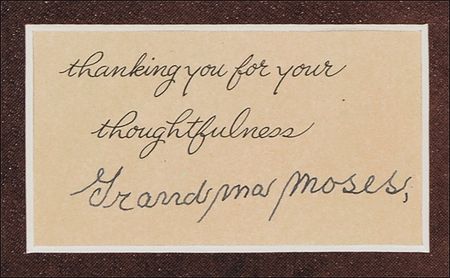 thanking you for your
thoughtfulness
Grandma Moses,